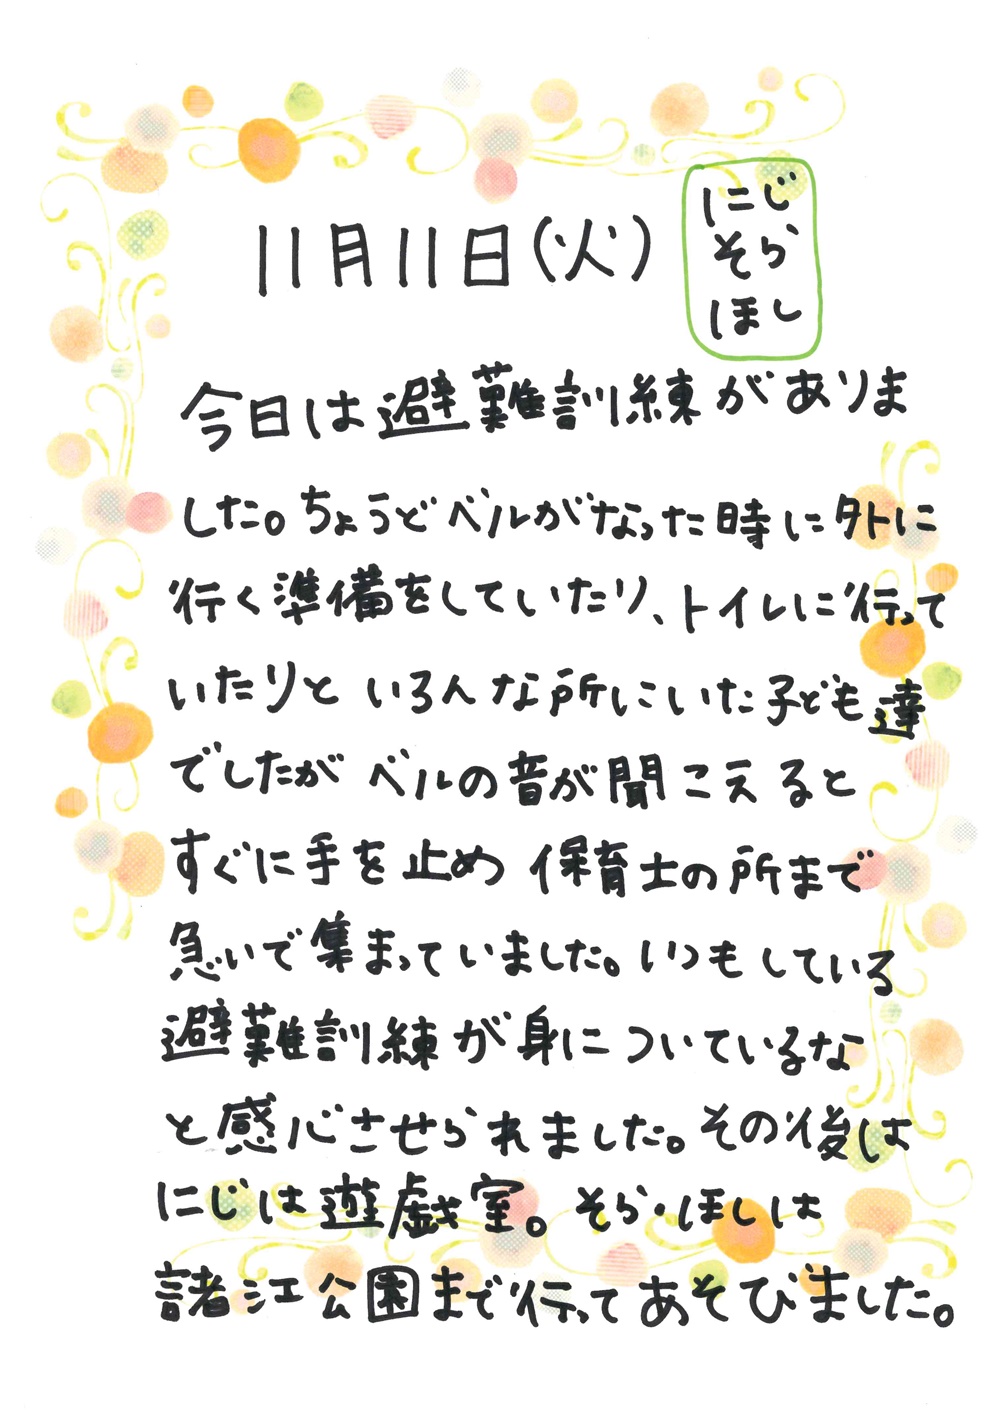 11月11日(火)
にじ
そら
ほし
今日は避難訓練がありま
した。ちょうどベルがなった時に外に
行く準備をしていたり、トイレに行って
いたりといろんな所にいた子ども達
でしたがベルの音が聞こえると
すぐに手を止め保育士の所まで
急いで集まっていました。いつもしている
避難訓練が身についているな
と感心させられました。その後は
にじは遊戯室。そら・ほしは
諸江公園まで行ってあそびました。